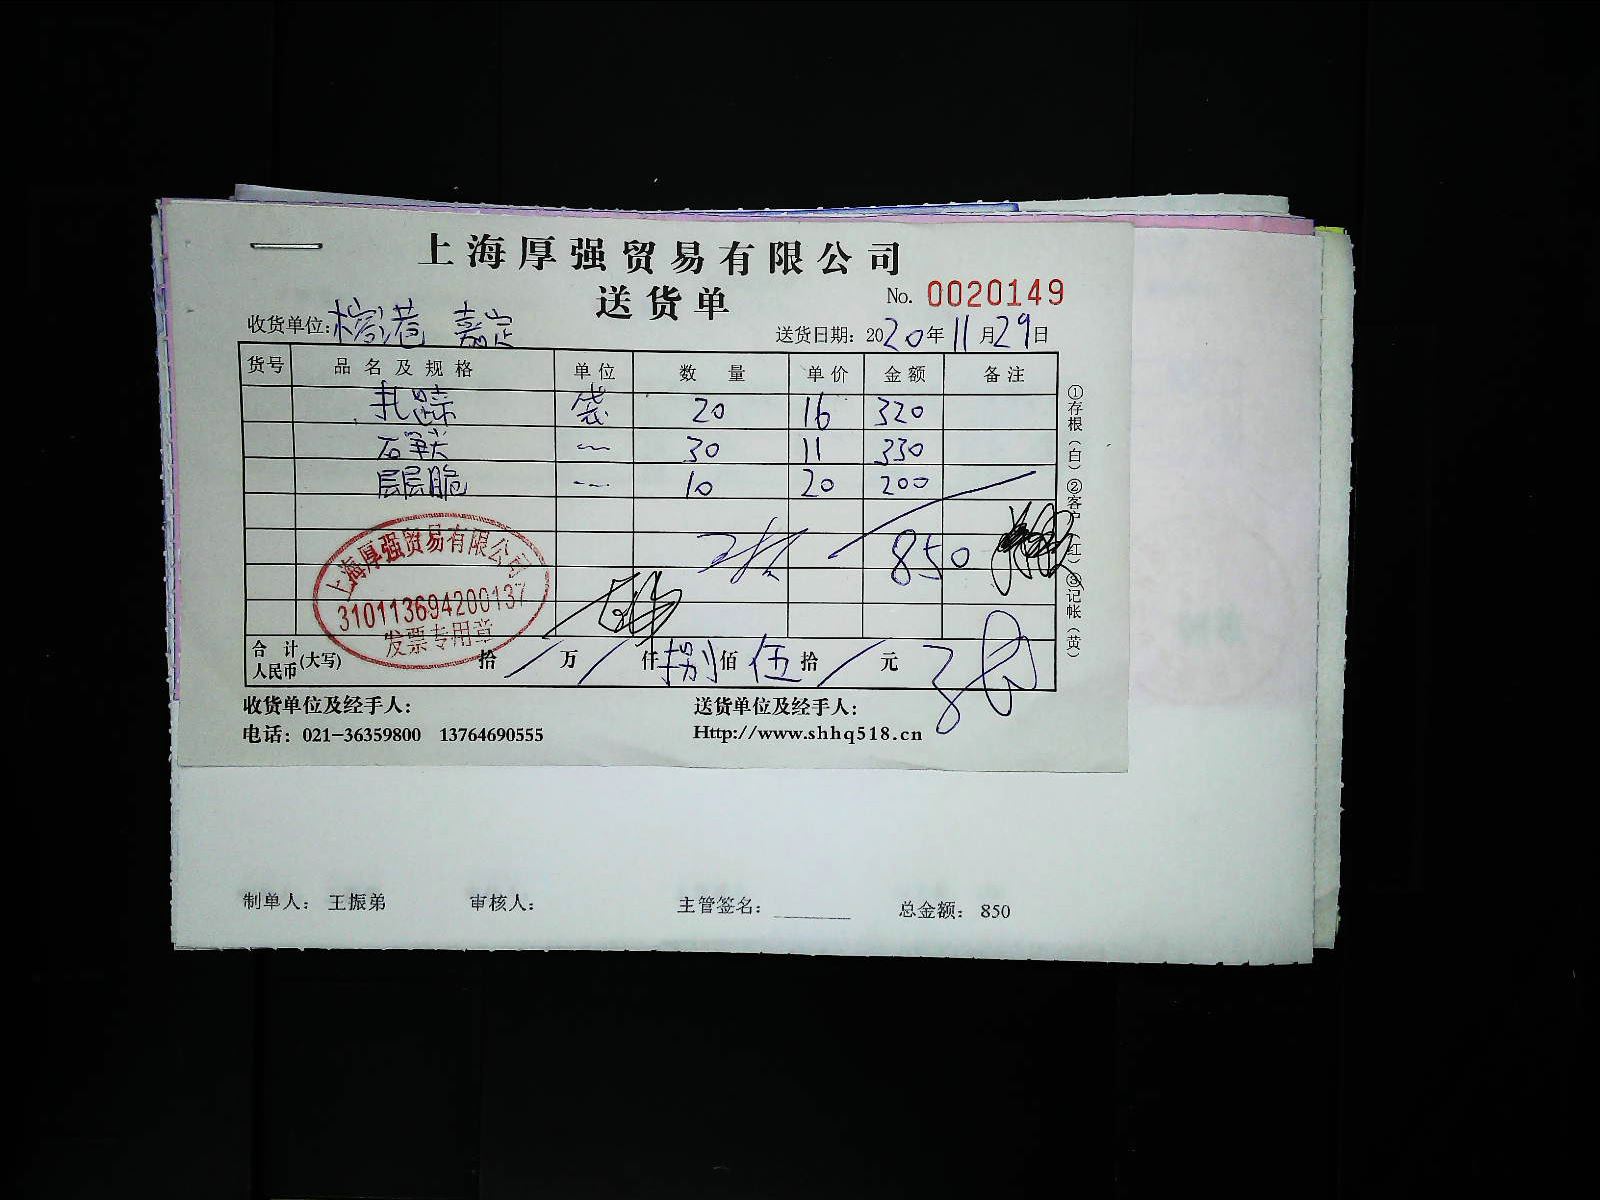 上海厚强贸易有限公司
送货单
No. 0020149
收货单位: 榕港 嘉定
送货日期: 2020年11月29日
货号 品名及规格 单位 数量 单价 金额 备注
扎蹄 袋 20 16 320
30 11 330
层层脆 10 20 200
850
上海厚强贸易有限公司
310113694200137
发票专用章
合计人民币(大写) 拾 / 万 / 仟 捌 佰 伍 拾 / 元
①存根(白)②客户(红)③记帐(黄)
收货单位及经手人: 送货单位及经手人:
电话: 021-36359800 13764690555 Http://www.shhq518.cn
制单人: 王振弟 审核人: 主管签名: 总金额: 850